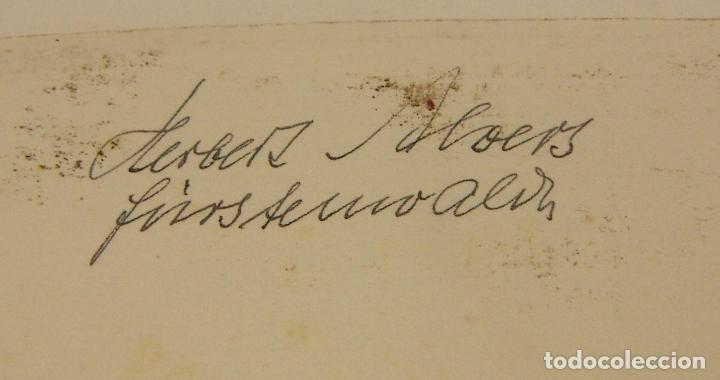 Herbert Alvers
Fürstenwalde
todocoleccion